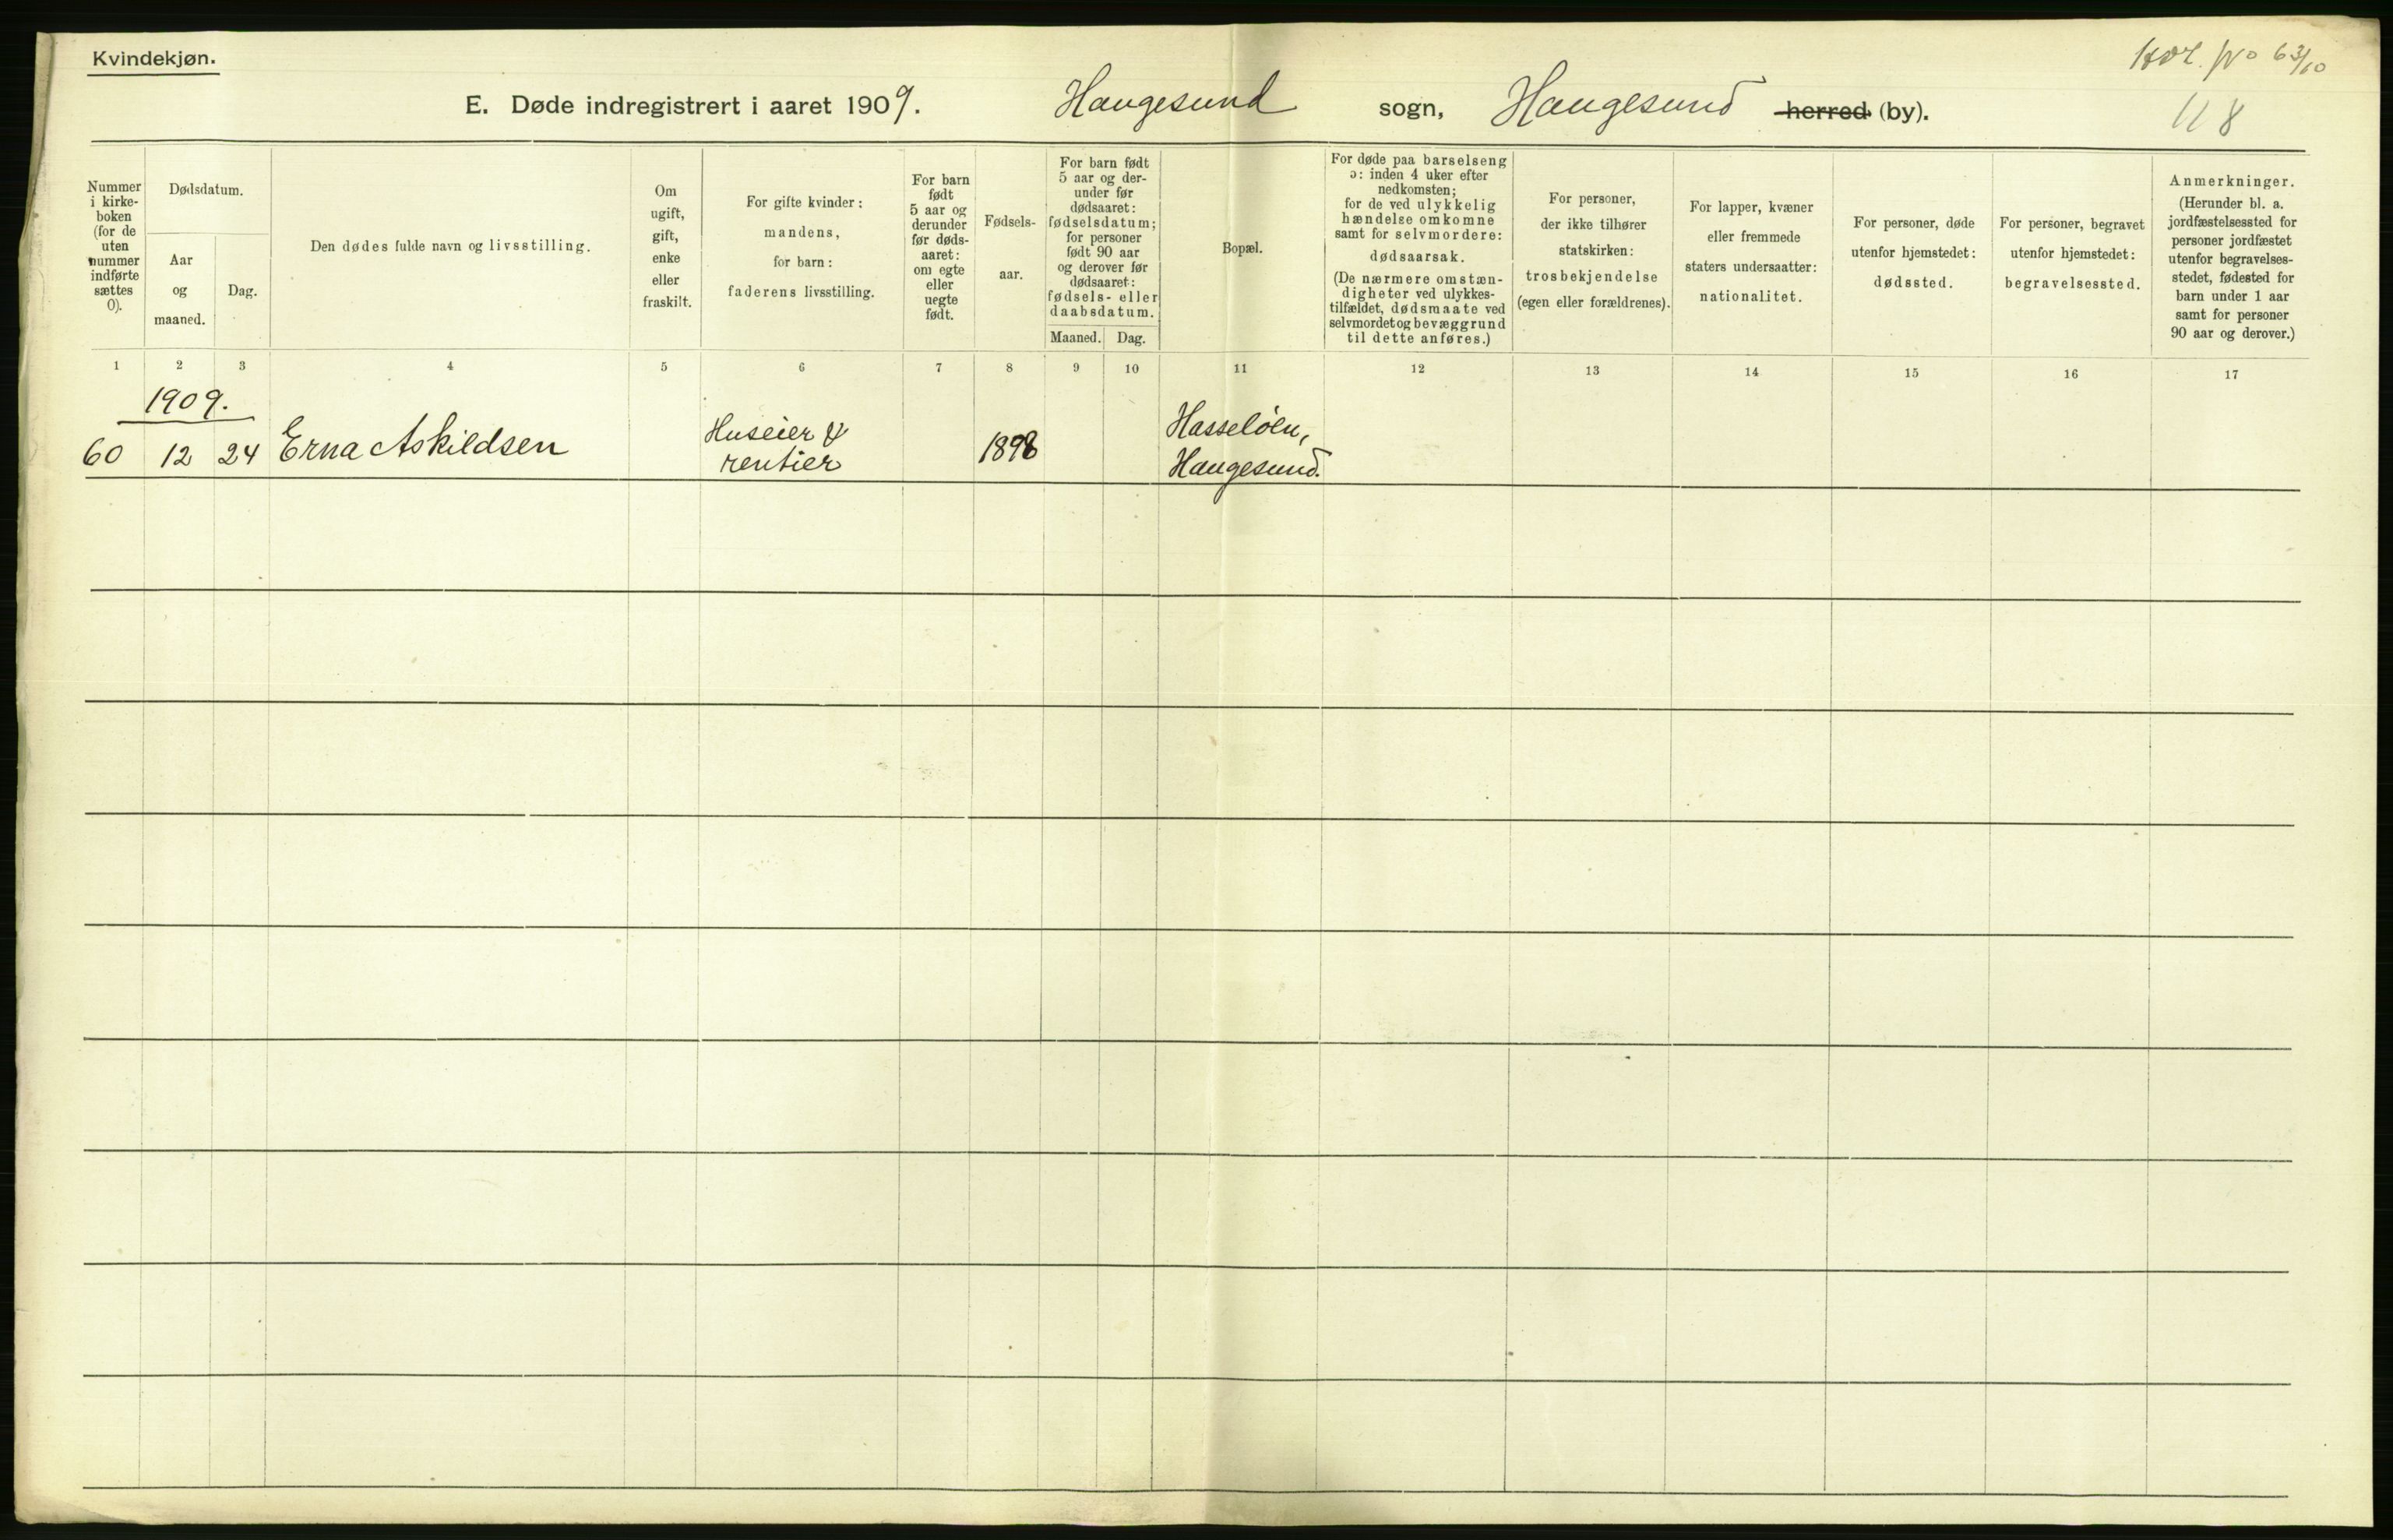 Kvindekjøn.
No 63/10
E. Døde indregistrert i aaret 1909. Haugesund sogn, Haugesund herred (by).
118
Nummer
i kirke-
boken
(for de
uten
nummer
indførte
sættes
0).
Dødsdatum.
Aar
og
maaned.
Dag.
Den dødes fulde navn og livsstilling.
Om
ugift,
gift,
enke
eller
fraskilt.
For gifte kvinder:
mandens,
for barn:
faderens livsstilling.
For barn
født
5 aar og
derunder
før døds-
aaret:
om egte
eller
uegte
født.
Fødsels-
aar.
For barn født
5 aar og der-
under før
dødsaaret:
fødselsdatum;
for personer
født 90 aar
og derover før
dødsaaret:
fødsels- eller
daabsdatum.
Maaned. Dag.
Bopæl.
For døde paa barselseng
ɔ: inden 4 uker efter
nedkomsten;
for de ved ulykkelig
hændelse omkomne
samt for selvmordere:
dødsaarsak.
(De nærmere omstæn-
digheter ved ulykkes-
tilfældet, dødsmaate ved
selvmordet og bevæggrund
til dette anføres.)
For personer,
der ikke tilhører
statskirken:
trosbekjendelse
(egen eller forældrenes).
For lapper, kvæner
eller fremmede
staters undersaatter:
nationalitet.
For personer, døde
utenfor hjemstedet:
dødssted.
For personer, begravet
utenfor hjemstedet:
begravelsessted.
Anmerkninger.
(Herunder bl. a.
jordfæstelsessted for
personer jordfæstet
utenfor begravelses-
stedet, fødested for
barn under 1 aar
samt for personer
90 aar og derover.)
1 2 3 4 5 6 7 8 9 10 11 12 13 14 15 16 17
1909.
60 12 24 Erna Askildsen
Huseier &
rentier
1898
Hasseløen,
Haugesund.